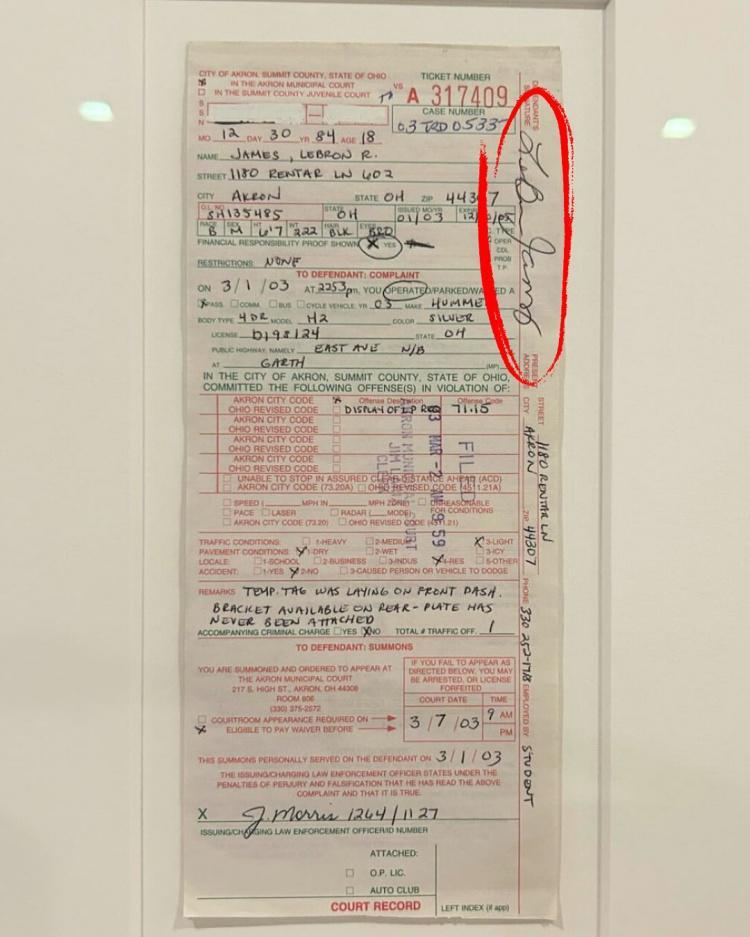 CITY OF AKRON, SUMMIT COUNTY, STATE OF OHIO
X IN THE AKRON MUNICIPAL COURT
IN THE SUMMIT COUNTY JUVENILE COURT
VS
TICKET NUMBER
A 317409
CASE NUMBER
03 TRD 05337
S
S
N
MO 12 DAY 30 YR 84 AGE 18
NAME JAMES, LEBRON R.
STREET 1180 RENTAR LN 602
CITY AKRON STATE OH ZIP 44307
O.L. NO. SH135485 STATE OH ISSUED MO/YR 01/03
RACE B SEX M HT 6'7 WT 222 HAIR BLK EYES BRO
FINANCIAL RESPONSIBILITY PROOF SHOWN X YES
C. TYPE
OPER
CDL
PROB
T.P.
RESTRICTIONS: NONE
TO DEFENDANT: COMPLAINT
ON 3/1/03 AT 2253 pm. YOU OPERATED/PARKED/WALKED A
X PASS. COMM. BUS CYCLE VEHICLE: YR 03 MAKE HUMME
BODY TYPE 4DR MODEL H2 COLOR SILVER
LICENSE D198124 STATE OH
PUBLIC HIGHWAY, NAMELY EAST AVE N/B
AT GARTH (MP)
IN THE CITY OF AKRON, SUMMIT COUNTY, STATE OF OHIO,
COMMITTED THE FOLLOWING OFFENSE(S) IN VIOLATION OF:
AKRON CITY CODE X Offense Description Offense Code
OHIO REVISED CODE DISPLAY OF LP REQ 71.15
AKRON CITY CODE
OHIO REVISED CODE
AKRON CITY CODE
OHIO REVISED CODE
AKRON CITY CODE
OHIO REVISED CODE
UNABLE TO STOP IN ASSURED CLEAR DISTANCE AHEAD (ACD)
AKRON CITY CODE (73.20A) OHIO REVISED CODE (4511.21A)
FILED
03 MAR -2 9 59
AKRON MUNICIPAL COURT
JIM
CLERK
SPEED ( MPH IN MPH ZONE) UNREASONABLE
PACE LASER RADAR ( MODE) FOR CONDITIONS
AKRON CITY CODE (73.20) OHIO REVISED CODE (4511.21)
TRAFFIC CONDITIONS: 1-HEAVY 2-MEDIUM X 3-LIGHT
PAVEMENT CONDITIONS: X 1-DRY 2-WET 3-ICY
LOCALE: 1-SCHOOL 2-BUSINESS 3-INDUS X 4-RES 5-OTHER
ACCIDENT: 1-YES X 2-NO 3-CAUSED PERSON OR VEHICLE TO DODGE
REMARKS TEMP. TAG WAS LAYING ON FRONT DASH.
BRACKET AVAILABLE ON REAR-PLATE HAS
NEVER BEEN ATTACHED
ACCOMPANYING CRIMINAL CHARGE YES X NO TOTAL # TRAFFIC OFF. 1
TO DEFENDANT: SUMMONS
YOU ARE SUMMONED AND ORDERED TO APPEAR AT
THE AKRON MUNICIPAL COURT
217 S. HIGH ST., AKRON, OH 44308
ROOM 806
(330) 375-2572
COURTROOM APPEARANCE REQUIRED ON
X ELIGIBLE TO PAY WAIVER BEFORE
IF YOU FAIL TO APPEAR AS
DIRECTED BELOW, YOU MAY
BE ARRESTED, OR LICENSE
FORFEITED
COURT DATE TIME
3/7/03 9 AM
PM
THIS SUMMONS PERSONALLY SERVED ON THE DEFENDANT ON 3/1/03
THE ISSUING/CHARGING LAW ENFORCEMENT OFFICER STATES UNDER THE
PENALTIES OF PERJURY AND FALSIFICATION THAT HE HAS READ THE ABOVE
COMPLAINT AND THAT IT IS TRUE.
X J. Morris 1264/1127
ISSUING/CHARGING LAW ENFORCEMENT OFFICER/ID NUMBER
ATTACHED:
O.P. LIC.
AUTO CLUB
COURT RECORD
LEFT INDEX (if app)
DEFENDANT'S SIGNATURE LeBron James
PRESENT ADDRESS
STREET 1180 RENTAR LN
CITY AKRON ZIP 44307 PHONE 330 252-1768 EMPLOYED BY STUDENT